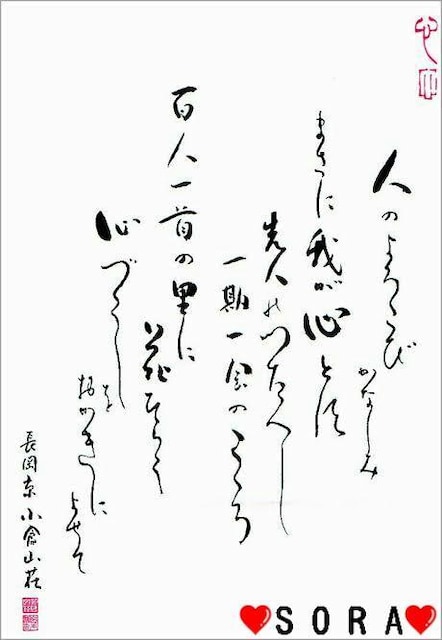 人のよろこび
かなしみ
まさに我が心とす
先人のつたへし
一期一会のこころ
百人一首の里に
花
心づくし
を
おかきに
よせて
長岡京 小倉山荘
SORA